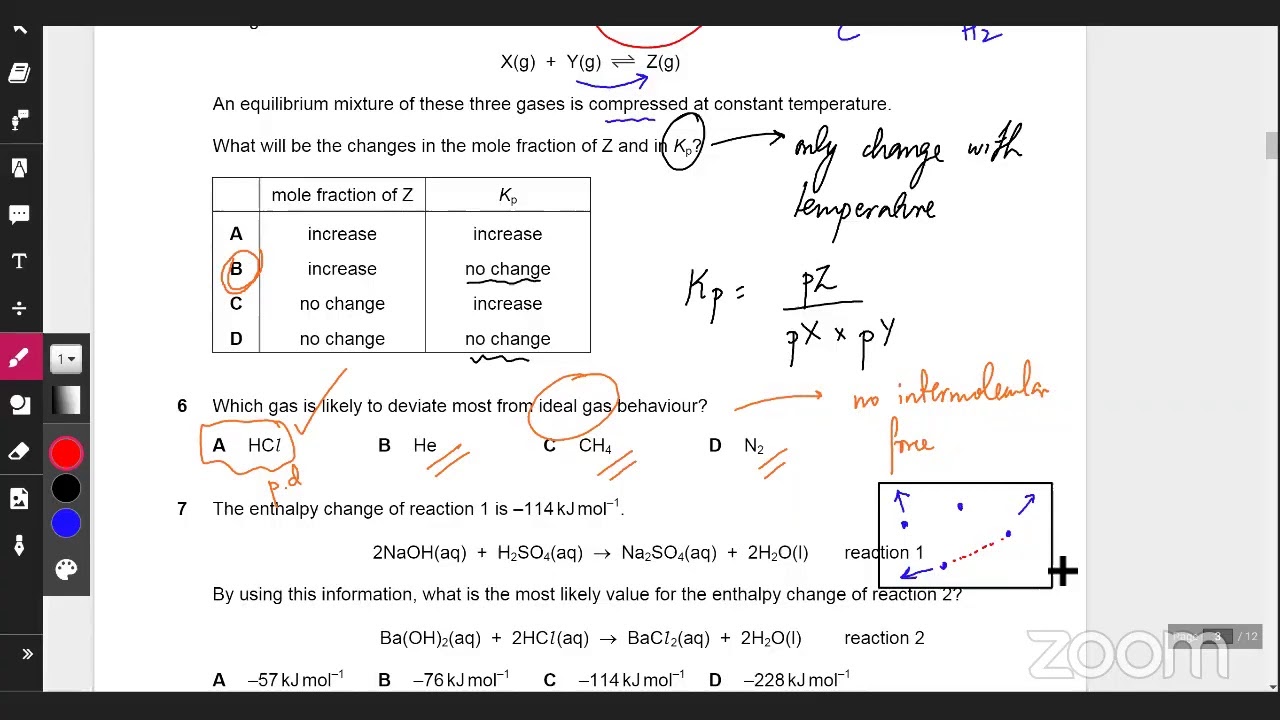 C H2
X(g) + Y(g) ⇌ Z(g)
An equilibrium mixture of these three gases is compressed at constant temperature.
What will be the changes in the mole fraction of Z and in Kp?
only change with
temperature
mole fraction of Z Kp
A increase increase
B increase no change
C no change increase
D no change no change
Kp = pZ
pX × pY
6 Which gas is likely to deviate most from ideal gas behaviour?
no intermolecular
force
A HCl B He C CH4 D N2
p.d
7 The enthalpy change of reaction 1 is –114 kJ mol–1.
2NaOH(aq) + H2SO4(aq) → Na2SO4(aq) + 2H2O(l) reaction 1
By using this information, what is the most likely value for the enthalpy change of reaction 2?
Ba(OH)2(aq) + 2HCl(aq) → BaCl2(aq) + 2H2O(l) reaction 2
A –57 kJ mol–1 B –76 kJ mol–1 C –114 kJ mol–1 D –228 kJ mol–1
T
1
Page 3 / 12
zoom